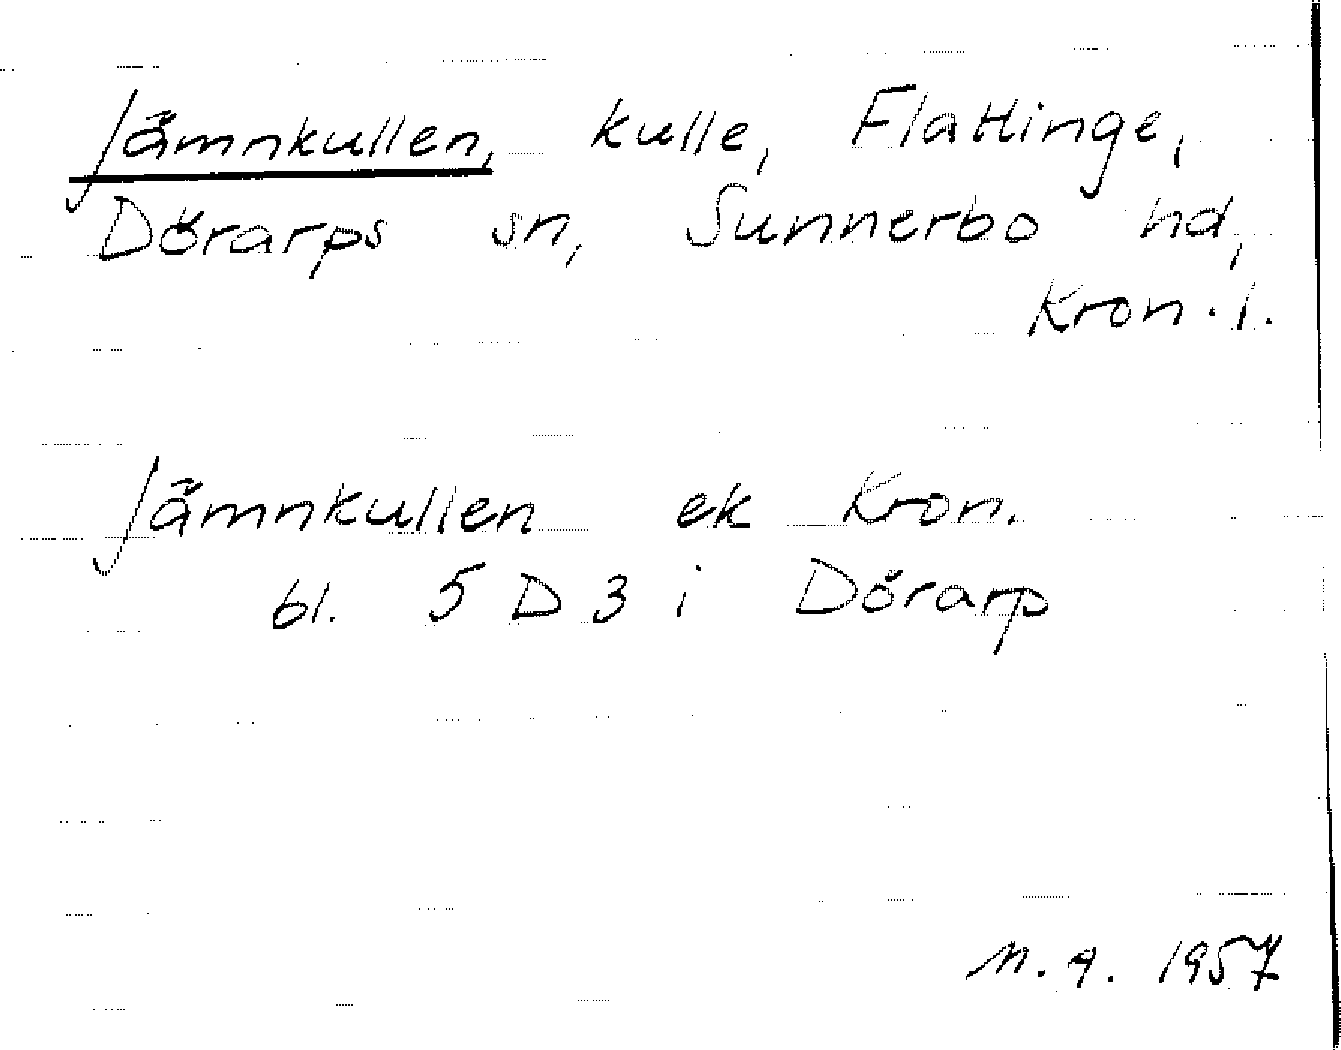 Jämnkullen, kulle, Flattinge,
Dörarps sn, Sunnerbo hd,
Kron. l.
Jämnkullen ek Kron.
bl. 5 D 3 i Dörarp
1957